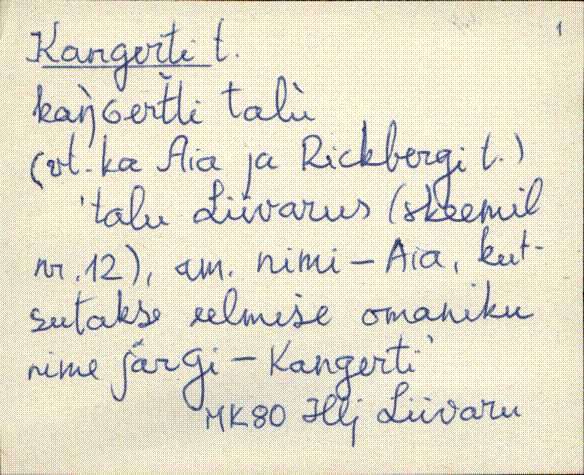 1
Kangerti t.
kaǹGert̆li talù
(vt. ka Aia ja Rickbergi t.)
'talu Liivarus (skeemil
nr. 12), am. nimi – Aia, kut-
sutakse eelmise omaniku
nime järgi – Kangerti'
MK80 Hlj Liivaru